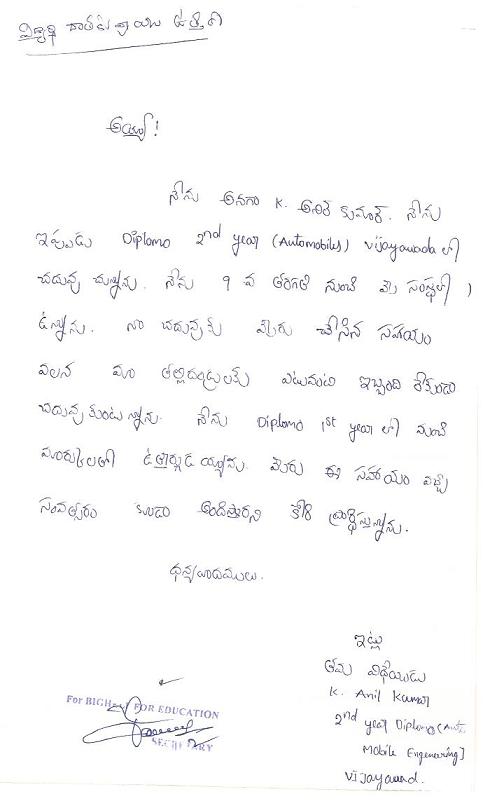 విద్యార్థి దాతకు వ్రాయు ఉత్తరం
అయ్యా!
నేను అనగా K. అనిల్ కుమార్. నేను
ఇపుడు Diplomo 2nd year (Automobiles) vijayawada లో
చదువు చున్నాను. నేను 9 వ తరగతి నుంచి మీ సంస్థలో
ఉన్నాను. నా చదువుకు మీరు చేసిన సహాయం
వలన మా తల్లిదండ్రులకు ఎటువంటి ఇబ్బంది లేకుండా
చదువుకుంటున్నాను. నేను Diplomo 1st year లో మంచి
మార్కులతో ఉత్తీర్ణుడయ్యాను. మీరు ఈ సహాయం వచ్చే
సంవత్సరం కూడా అందిస్తారని కోరి ప్రార్థిస్తున్నాను.
ధన్యవాదములు.
ఇట్లు
తమ విధేయుడు
K. Anil Kumar
2nd year Diplomo (Auto
Mobile Engeneering]
Vijayawad.
For BIGH FOR EDUCATION
SECRETARY